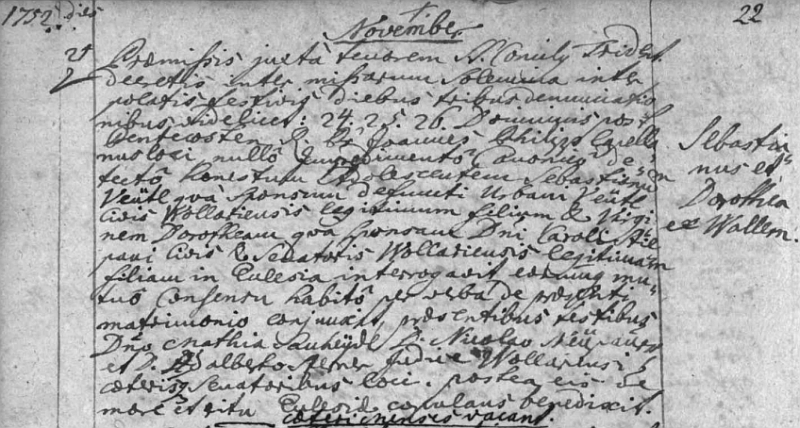 1752 dies
November
22
Præmissis juxta tenorem S. Concily Trident.
decretis inter missarum solemnia inter
polatis festivis diebus tribus denunciatio
nibus videlicet: 24. 25. 26. Dominicis post
Pentecosten R. Joannes Philipp Capella
nus loci nullo impedimento canonico de-
tecto honestum Adolescentem Sebastianum
Veütl qva sponsum defuncti Urbani Veütl
Civis Wollariensis legitimum filium & Virgi
nem Dorotheam qva sponsam Dni Caroli
Civis & Senatoris Wollariensis legitimam
filiam in Eclesia interrogavit, eorumq mu-
tuo consensu habito per verba de præsenti
matrimonio conjunxit, præsentibus testibus
Dno Mathia D. Nicolao
et D. Adalberto Judice Wollariensi
cæterisq Senatoribus loci. postea eis de
more et ritu Eclesiæ copulans benedixit.
vacant.
Sebastia
nus et
Dorothea
ex Wallern.